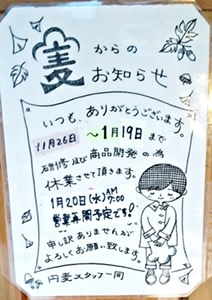 麦からの
お知らせ
いつも、ありがとうございます。
11月26日 〜1月19日まで
研修及び商品開発の為
休業させて頂きます。
1月20日(水)AM7:00
営業再開予定です!
申し訳ありませんが
よろしくお願い致します。
円麦スタッフ一同